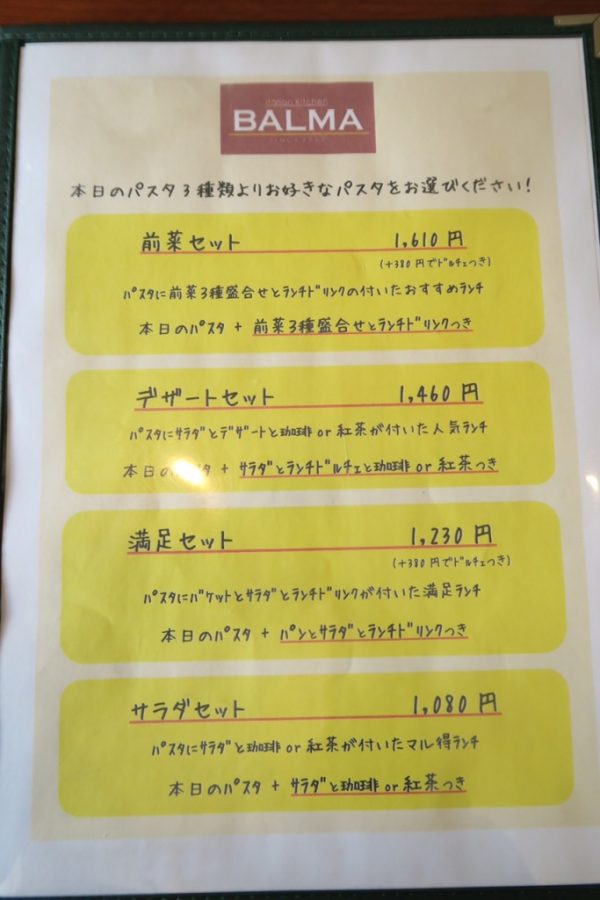 Italian Kitchen
BALMA
本日のパスタ3種類よりお好きなパスタをお選びください!
前菜セット 1,610円
(+380円でドルチェつき)
パスタに前菜3種盛合せとランチドリンクの付いたおすすめランチ
本日のパスタ + 前菜3種盛合せとランチドリンクつき
デザートセット 1,460円
パスタにサラダとデザートと珈琲 or 紅茶が付いた人気ランチ
本日のパスタ + サラダとランチドルチェと珈琲 or 紅茶つき
満足セット 1,230円
(+380円でドルチェつき)
パスタにバケットとサラダとランチドリンクが付いた満足ランチ
本日のパスタ + パンとサラダとランチドリンクつき
サラダセット 1,080円
パスタにサラダと珈琲 or 紅茶が付いたマル得ランチ
本日のパスタ + サラダと珈琲 or 紅茶つき